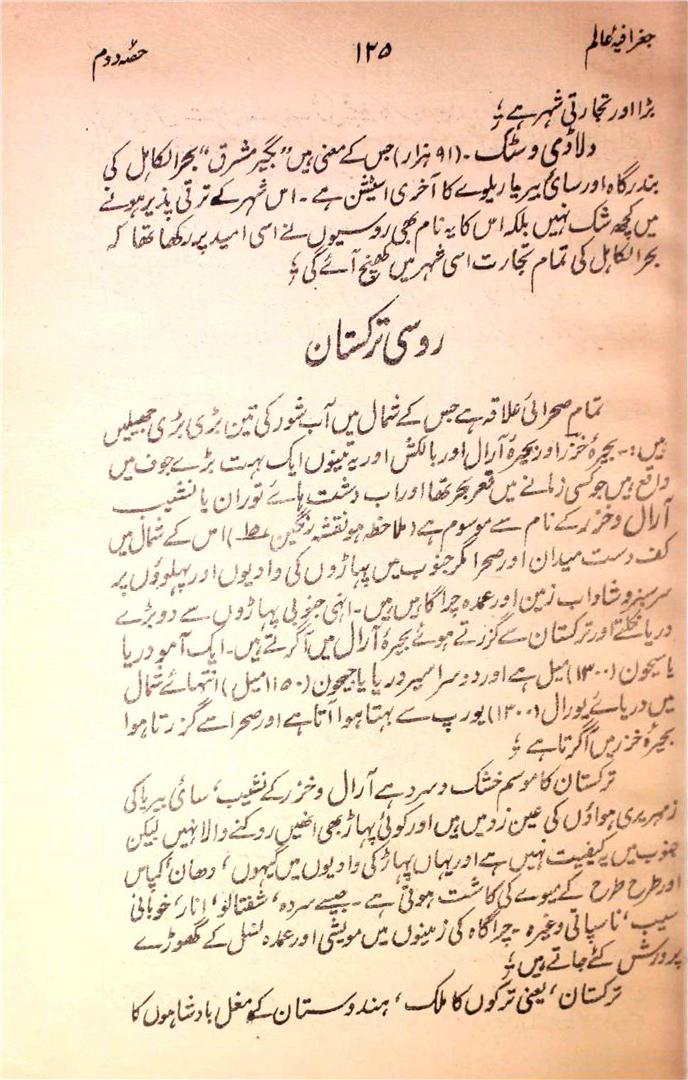 جغرافیۂ عالم ۱۲۵ حصّہ دوم
بڑا اور تجارتی شہر ہے ؛
ولاڈی وسٹک ۔ (۹۱ ہزار) جس کے معنی ہیں "بگیر مشرق" بحر الکاہل کی
بندرگاہ اور سائی بیریا ریلوے کا آخری اسٹیشن ہے ۔ اس شہر کے ترقی پذیر ہونے
میں کچھ شک نہیں بلکہ اس کا یہ نام بھی روسیوں نے اسی امید پر رکھا تھا کہ
بحر الکاہل کی تمام تجارت اسی شہر میں کھنچ آئے گی ؛
روسی ترکستان
تمام صحرائی علاقہ ہے جس کے شمال میں آب شور کی تین بڑی بڑی جھیلیں
ہیں :- بحیرۂ خزر اور بحیرۂ آرال اور بالکش اور یہ تینوں ایک بہت بڑے جوف میں
واقع ہیں جو کسی زمانے میں قعر بحر تھا اور اب دشت ہائے توران یا نشیب
آرال و خزر کے نام سے موسوم ہے (ملاحظہ ہو نقشہ رنگین) اس کے شمال میں
کف دست میدان اور صحرا مگر جنوب میں پہاڑوں کی وادیوں اور پہلوؤں پر
سرسبز و شاداب زمین اور عمدہ چراگاہیں ہیں ۔ انہی جنوبی پہاڑوں سے دو بڑے
دریا نکلتے اور ترکستان سے گزرتے ہوئے بحیرۂ آرال میں آگرتے ہیں ۔ ایک آمو دریا
یا سیحون (۱۳۰۰) میل ہے اور دوسرا سیر دریا یا جیحون (۱۱۵۰ میل) انتہائے شمال
میں دریائے یورال (۱۳۰۰) یورپ سے بہتا ہوا آتا ہے اور صحرا سے گزرتا ہوا
بحیرۂ خزر میں آگرتا ہے ؛
ترکستان کا موسم خشک و سرد ہے آرال و خزر کے نشیب، سائی بیریا کی
زمہریری ہواؤں کی عین زد میں ہیں اور کوئی پہاڑ بھی انھیں روکنے والا نہیں لیکن
جنوب میں یہ کیفیت نہیں ہے اور یہاں پہاڑ کی وادیوں میں گیہوں، دھان، کپاس
اور طرح طرح کے میوے کی کاشت ہوتی ہے ۔ جیسے سردہ، شفتالو، انار، خوبانی
سیب، ناسپاتی وغیرہ ۔ چراگاہ کی زمینوں میں مویشی اور عمدہ نسل کے گھوڑے
پرورش کئے جاتے ہیں ؛
ترکستان، یعنی ترکوں کا ملک، ہندوستان کے مغل بادشاہوں کا